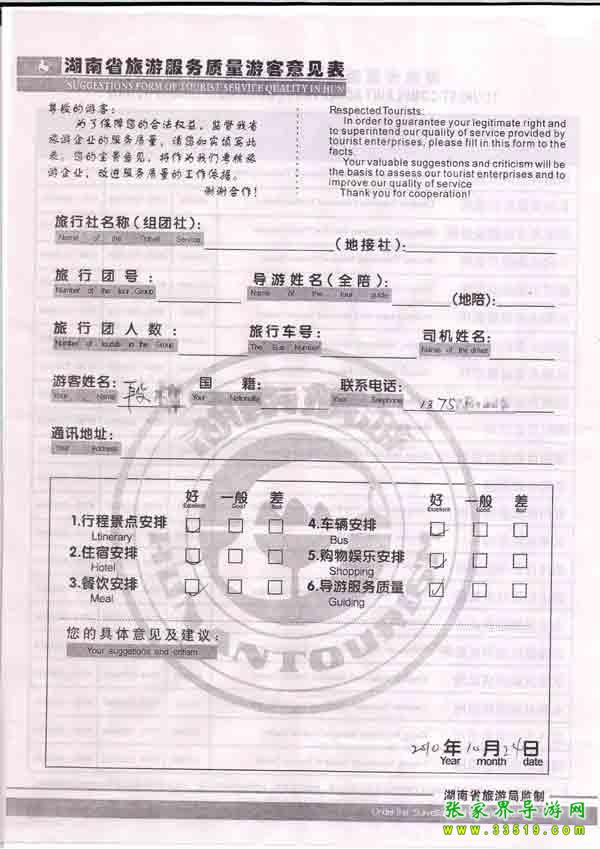 湖南省旅游服务质量游客意见表
SUGGESTIONS FORM OF TOURIST SERVICE QUALITY IN HUN
尊敬的游客：
为了保障您的合法权益，监督我省
旅游企业的服务质量，请您如实填写此
表。您的宝贵意见，将作为我们考核旅
游企业，改进服务质量的工作依据。
谢谢合作！
Respected Tourists:
In order to guarantee your legitimate right and
to superintend our quality of service provided by
tourist enterprises, please fill in this form to the
facts.
Your valuable suggestions and criticism will be
the basis to assess our tourist enterprises and to
improve our quality of service
Thank you for cooperation!
旅行社名称(组团社): (地接社):
Name of the Travel Service
旅行团号: 导游姓名(全陪) (地陪):
Number of the tour Group Name of the tour guide
旅行团人数: 旅行车号: 司机姓名:
Number of tourists in the Group The Bus Number Name of the driver
游客姓名: 段 国籍: 联系电话: 1375
Your Name Your Nationality Your Telephone
通讯地址:
Your Address
好 一般 差 好 一般 差
Excellent Good Bad Excellent Good Bad
1.行程景点安排 4.车辆安排
Ltinerary Bus
2.住宿安排 5.购物娱乐安排
Hotel Shopping
3.餐饮安排 6.导游服务质量
Meal Guiding
您的具体意见及建议:
Your suggetions and critism
HUNANTOURISM
2010年10月24日
Year month date
湖南省旅游局监制
Under the
张家界导游网
www.33519.com